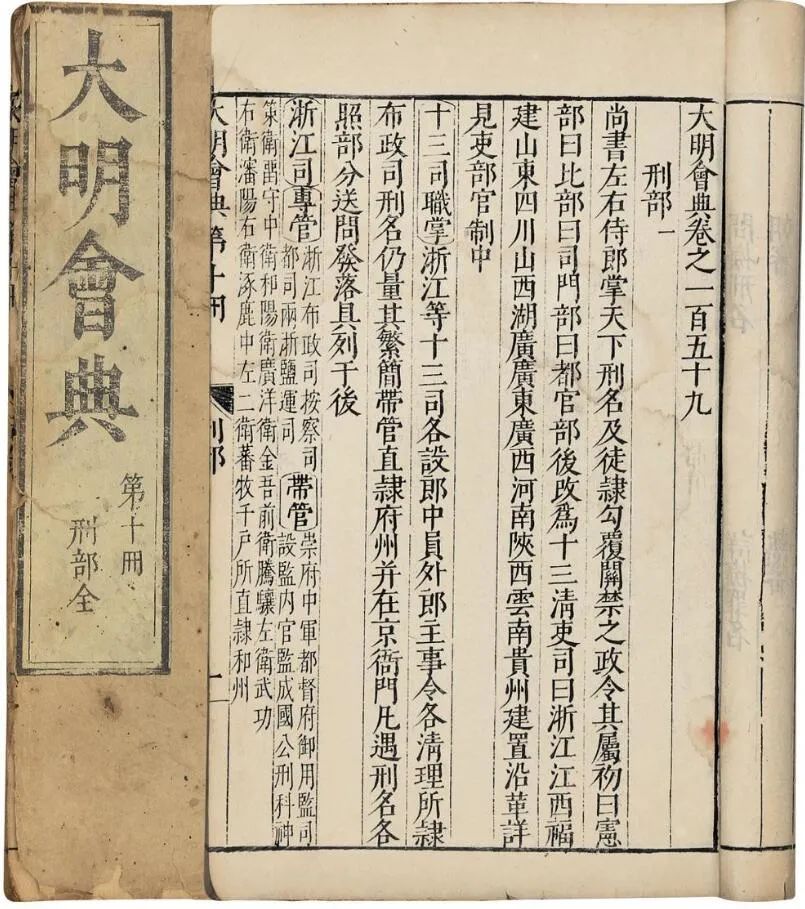 大明會典卷之一百五十九
刑部一
尚書左右侍郎掌天下刑名及徒隸勾覆關禁之政令其屬初曰憲
部曰比部曰司門部曰都官部後改爲十三清吏司曰浙江江西福
建山東四川山西湖廣廣東廣西河南陝西雲南貴州建置沿革詳
見吏部官制中
十三司職掌浙江等十三司各設郎中員外郎主事令各清理所隸
布政司刑名仍量其繁簡帶管直隸府州并在京衙門凡遇刑名各
照部分送問發落具列于後
浙江司專管浙江布政司按察司都司兩浙鹽運司帶管崇府中軍都督府御用監司設監内官監成國公刑科神
策衛畱守中衛和陽衛廣洋衛金吾前衛騰驤左衛武功
右衛瀋陽右衛涿鹿中左二衛蕃牧千戶所直隸和州
大明會典第十冊 刑部
大明會典
第十冊
刑部全